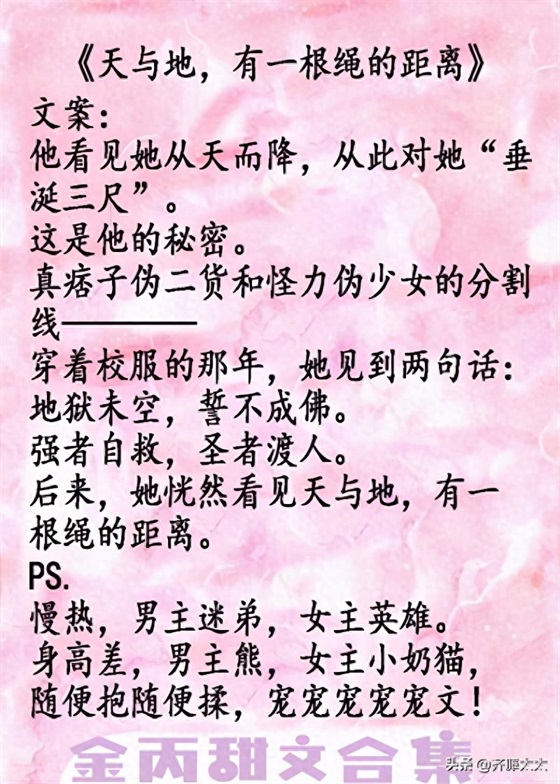 《天与地，有一根绳的距离》
文案：
他看见她从天而降，从此对她“垂
涎三尺”。
这是他的秘密。
真痞子伪二货和怪力伪少女的分割
线————
穿着校服的那年，她见到两句话：
地狱未空，誓不成佛。
强者自救，圣者渡人。
后来，她恍然看见天与地，有一
根绳的距离。
PS.
慢热，男主迷弟，女主英雄。
身高差，男主熊，女主小奶猫，
随便抱随便揉，宠宠宠宠宠文！
金丙甜文合集
头条 @齐暺太太